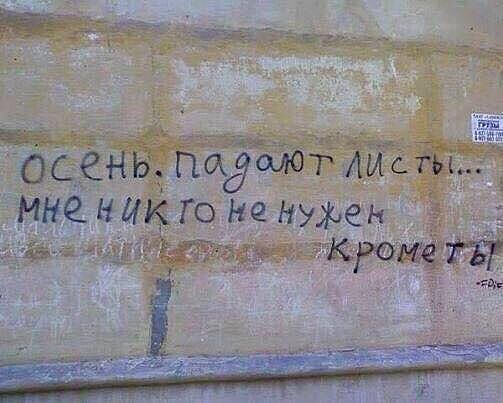 осень. падают листы...
мне никто не нужен
кроме ты
ГРУЗЫ